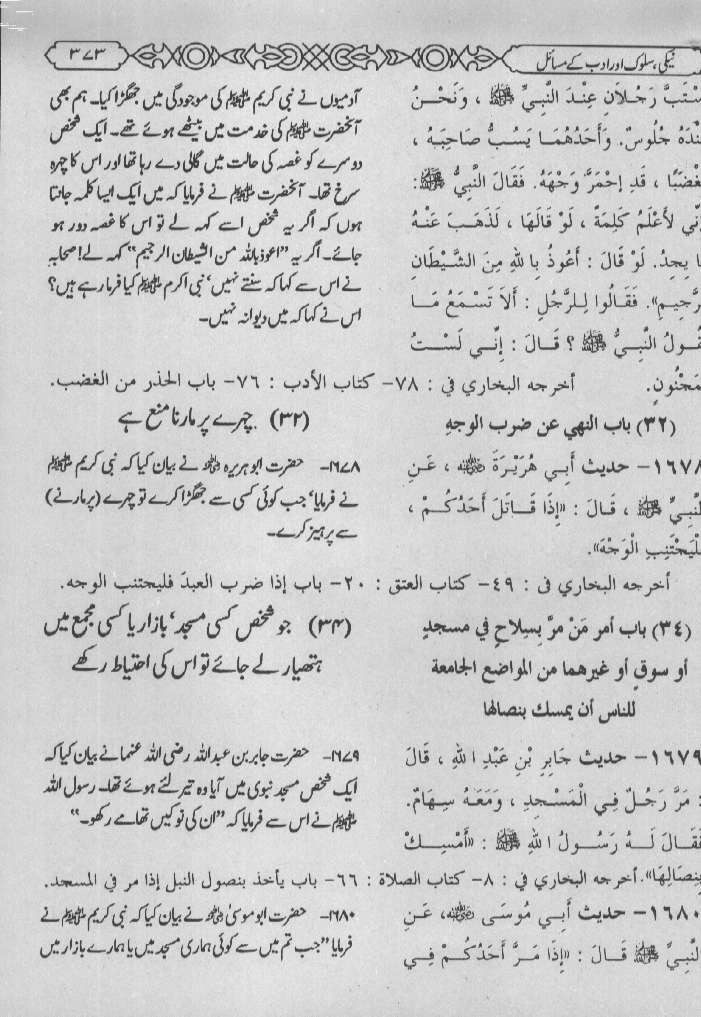 نیکی، سلوک اور ادب کے مسائل
۳۷۳
سْتَبَّ رَجُلاَنِ عِنْدَ النَّبِيِّ ﷺ ، وَنَحْنُ
عِنْدَهُ جُلُوسٌ. وَأَحَدُهُمَا يَسُبُّ صَاحِبَهُ ،
مُغْضَبًا ، قَدِ احْمَرَّ وَجْهُهُ. فَقَالَ النَّبِيُّ ﷺ:
إِنِّي لأَعْلَمُ كَلِمَةً ، لَوْ قَالَهَا ، لَذَهَبَ عَنْهُ
مَا يَجِدُ. لَوْ قَالَ : أَعُوذُ بِاللهِ مِنَ الشَّيْطَانِ
الرَّجِيمِ». فَقَالُوا لِلرَّجُلِ : أَلاَ تَسْمَعُ مَا
يَقُولُ النَّبِيُّ ﷺ ؟ قَالَ : إِنِّي لَسْتُ
بِمَجْنُونٍ.
آدمیوں نے نبی کریم ﷺ کی موجودگی میں جھگڑا کیا۔ ہم بھی
آنحضرت ﷺ کی خدمت میں بیٹھے ہوئے تھے۔ ایک شخص
دوسرے کو غصہ کی حالت میں گالی دے رہا تھا اور اس کا چہرہ
سرخ تھا۔ آنحضرت ﷺ نے فرمایا کہ میں ایک ایسا کلمہ جانتا
ہوں کہ اگر یہ شخص اسے کہہ لے تو اس کا غصہ دور ہو
جائے۔ اگر یہ ”اعوذ باللہ من الشیطان الرجیم“ کہہ لے! صحابہ
نے اس سے کہا کہ سنتے نہیں‘ نبی اکرم ﷺ کیا فرما رہے ہیں؟
اس نے کہا کہ میں دیوانہ نہیں۔
أخرجه البخاري في : ٧٨- كتاب الأدب : ٧٦- باب الحذر من الغضب.
(٣٢) باب النهي عن ضرب الوجه
(۳۲) چہرے پر مارنا منع ہے
١٦٧٨- حديث أَبِي هُرَيْرَةَ رضي الله عنه ، عَنِ
النَّبِيِّ ﷺ ، قَالَ : «إِذَا قَاتَلَ أَحَدُكُمْ ،
فَلْيَجْتَنِبِ الْوَجْهَ».
۱۶۷۸- حضرت ابو ہریرہ رضی اللہ عنہ نے بیان کیا کہ نبی کریم ﷺ
نے فرمایا‘ جب کوئی کسی سے جھگڑا کرے تو چہرے (پر مارنے)
سے پرہیز کرے۔
أخرجه البخاري في : ٤٩- كتاب العتق : ٢٠- باب إذا ضرب العبد فليجتنب الوجه.
(٣٤) باب أمر مَنْ مرَّ بِسِلاحٍ في مسجدٍ
أو سوقٍ أو غيرهما من المواضع الجامعة
للناس أن يمسك بنصالها
(۳۴) جو شخص کسی مسجد‘ بازار یا کسی مجمع میں
ہتھیار لے جائے تو اس کی احتیاط رکھے
١٦٧٩- حديث جَابِرِ بْنِ عَبْدِ اللهِ ، قَالَ
: مَرَّ رَجُلٌ فِي الْمَسْجِدِ ، وَمَعَهُ سِهَامٌ.
فَقَالَ لَهُ رَسُولُ اللهِ ﷺ : «أَمْسِكْ
بِنِصَالِهَا». أخرجه البخاري في : ٨- كتاب الصلاة : ٦٦- باب يأخذ بنصول النبل إذا مر في المسجد.
۱۶۷۹- حضرت جابر بن عبداللہ رضی اللہ عنہما نے بیان کیا کہ
ایک شخص مسجد نبوی میں آیا وہ تیر لئے ہوئے تھا۔ رسول اللہ
ﷺ نے اس سے فرمایا کہ ”ان کی نوکیں تھامے رکھو۔“
١٦٨٠- حديث أَبِي مُوسَى رضي الله عنه، عَنِ
النَّبِيِّ ﷺ قَالَ : «إِذَا مَرَّ أَحَدُكُمْ فِي
۱۶۸۰- حضرت ابو موسیٰ رضی اللہ عنہ نے بیان کیا کہ نبی کریم ﷺ نے
فرمایا ”جب تم میں سے کوئی ہماری مسجد میں یا ہمارے بازار میں